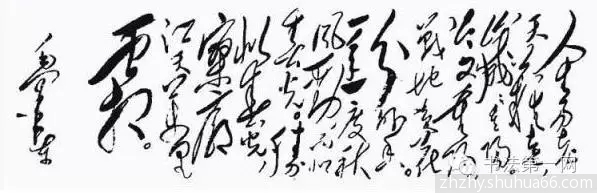 人生易老
天难老
岁岁重阳。
今又重阳
战地黄花
分外香。
一年一度秋
风劲不似
春光。胜
似春光
寥廓
江天万里
霜。
毛泽东
书法第一网
zhzhy.shuhua66.com